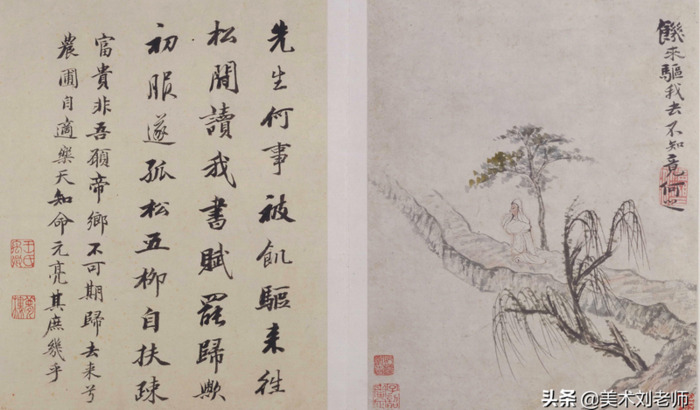 饑来驅我去不知竟何之
先生何事被飢驅来往
松間讀我書賦罷歸歟
初服遂孤松五柳自扶疎
富貴非吾願帝鄉不可期歸去来兮
農圃自適樂天知命元亮其庶幾乎
头条 @美术刘老师